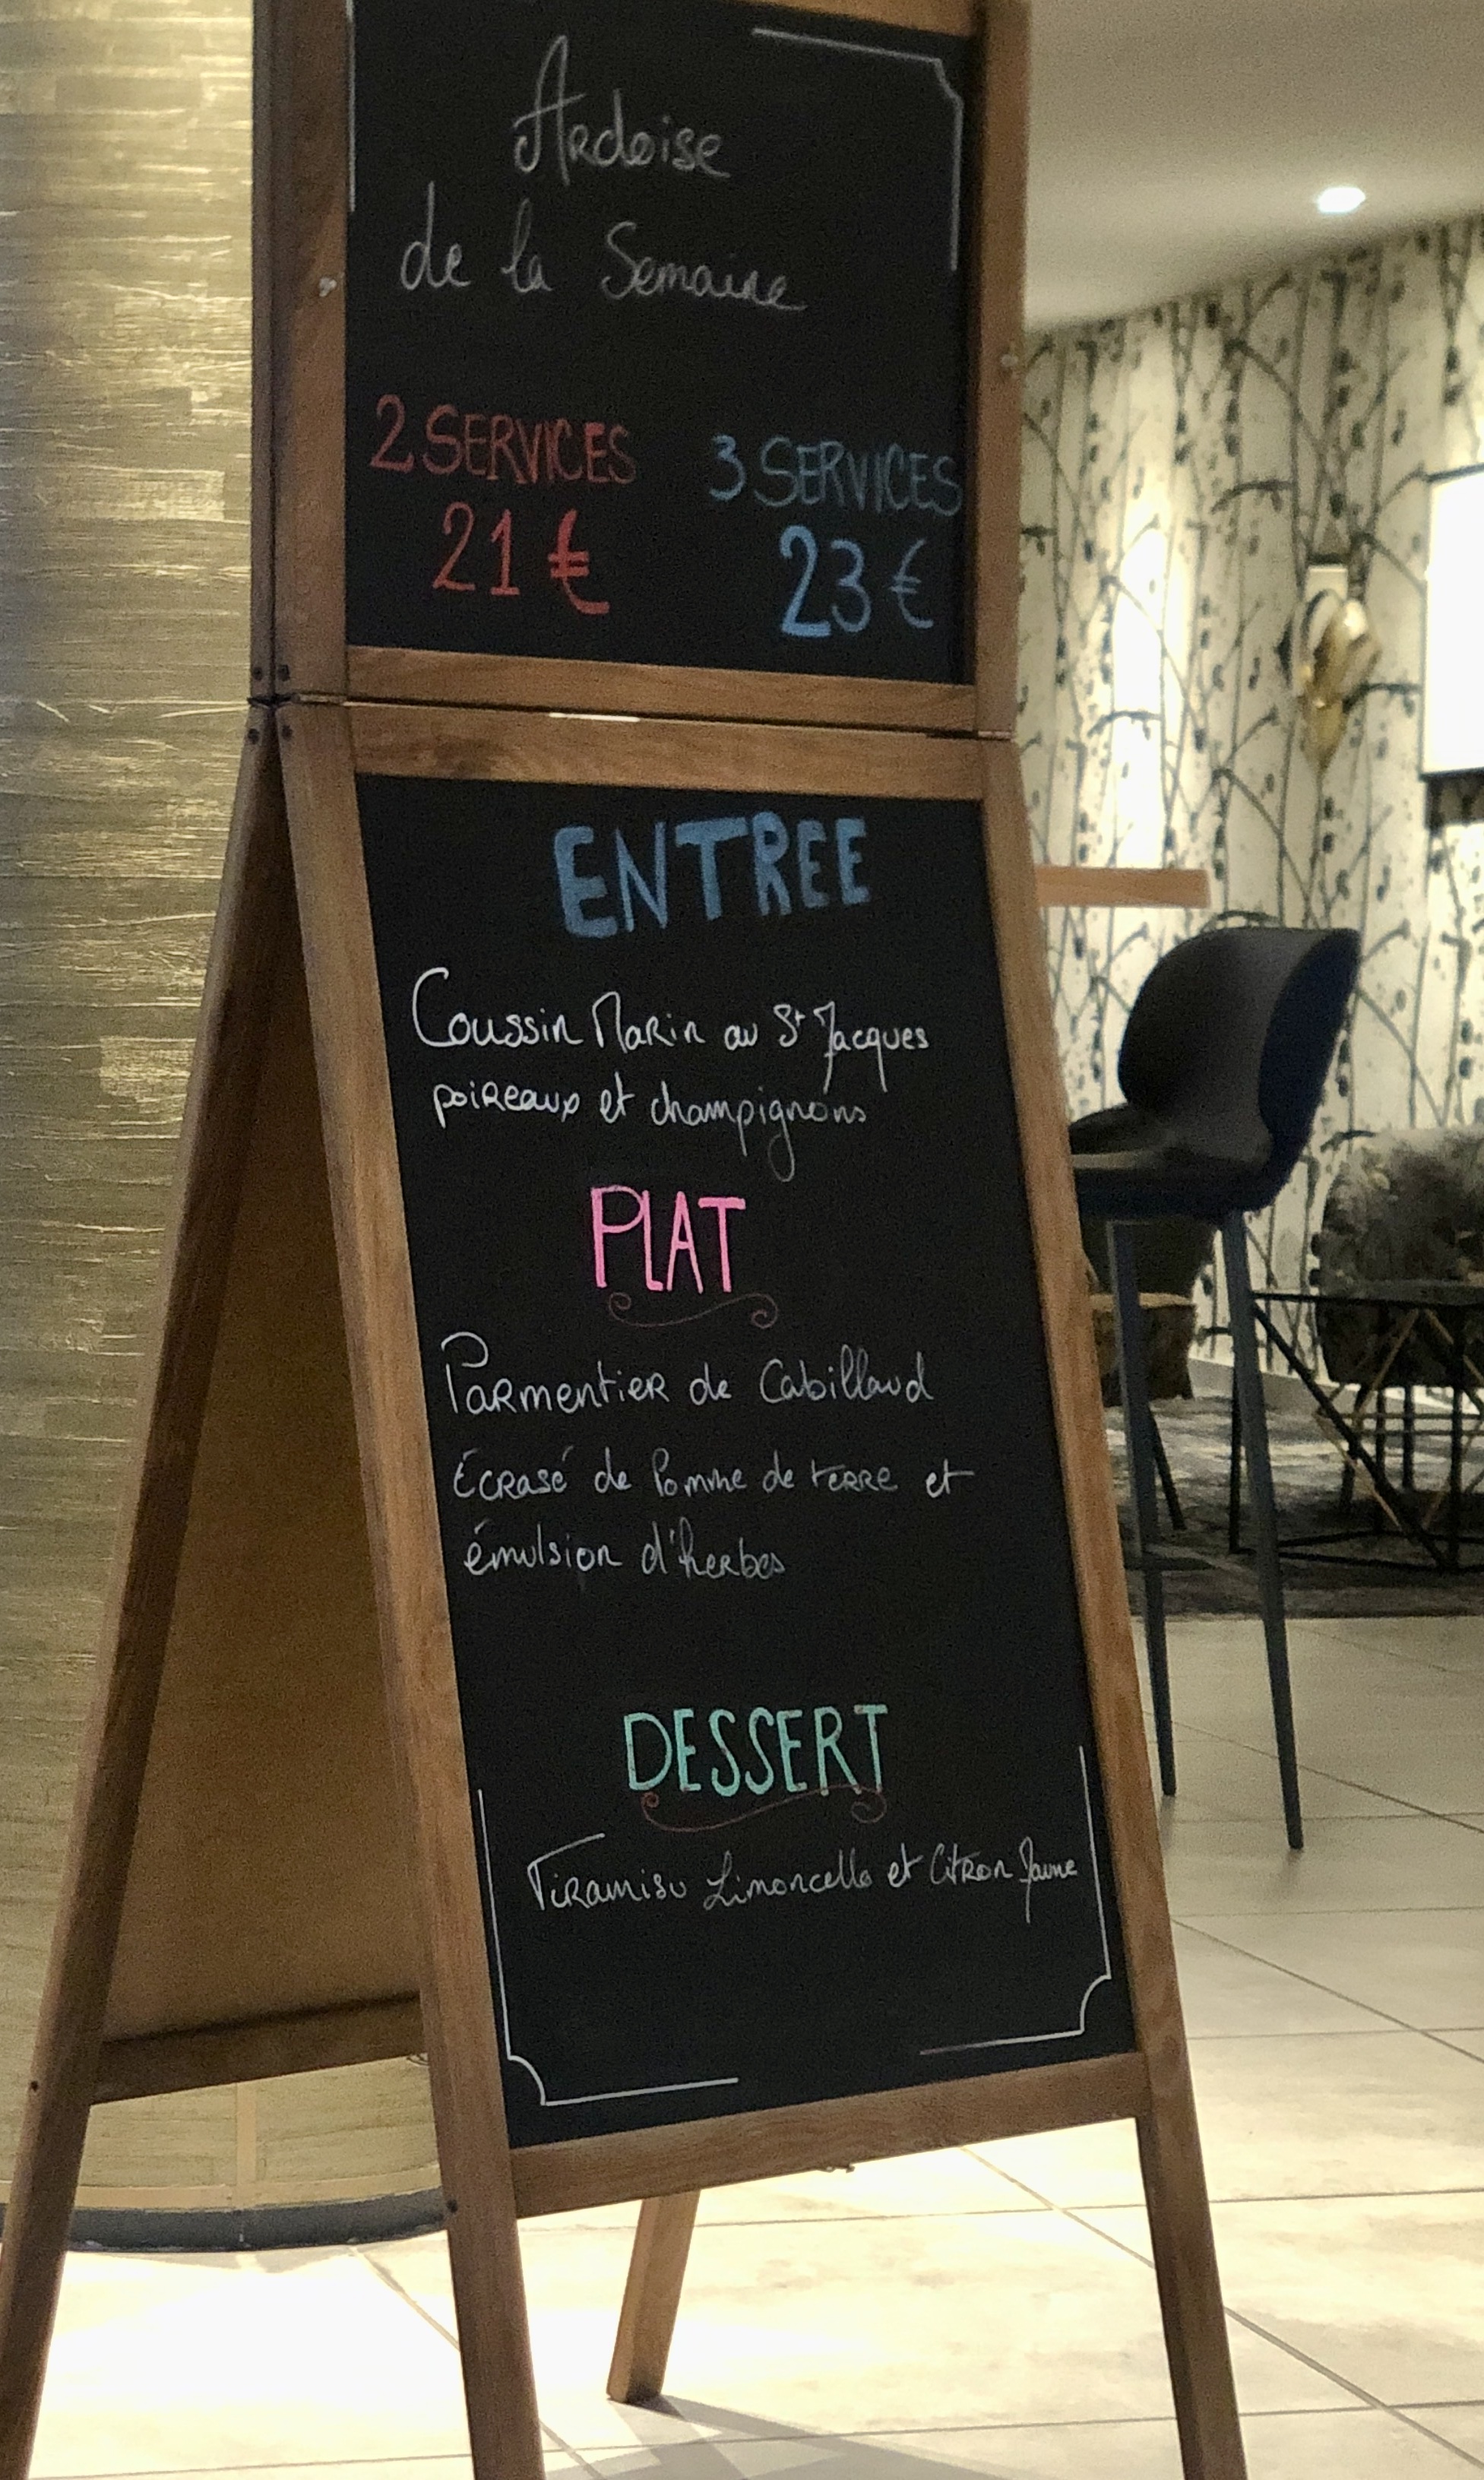 Ardoise
de la Semaine
2 SERVICES
21 €
3 SERVICES
23 €
ENTREE
Coussin Marin au St Jacques
poireaux et champignons
PLAT
Parmentier de Cabillaud
Écrasé de Pomme de terre et
émulsion d'herbes
DESSERT
Tiramisu Limoncello et Citron Jaune